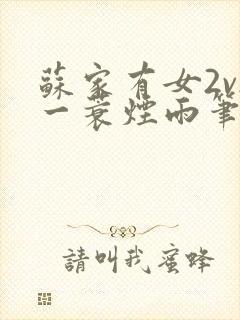 蘇家有女2v
一蓑煙雨筆
請叫我蜜蜂